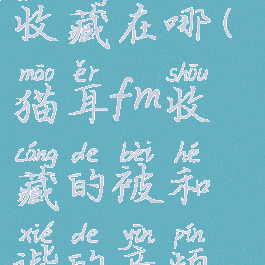 收藏在哪(
māo ěr shōu
猫耳fm收
cáng de bèi hé
藏的被和
xié de yīn pín
谐的音频